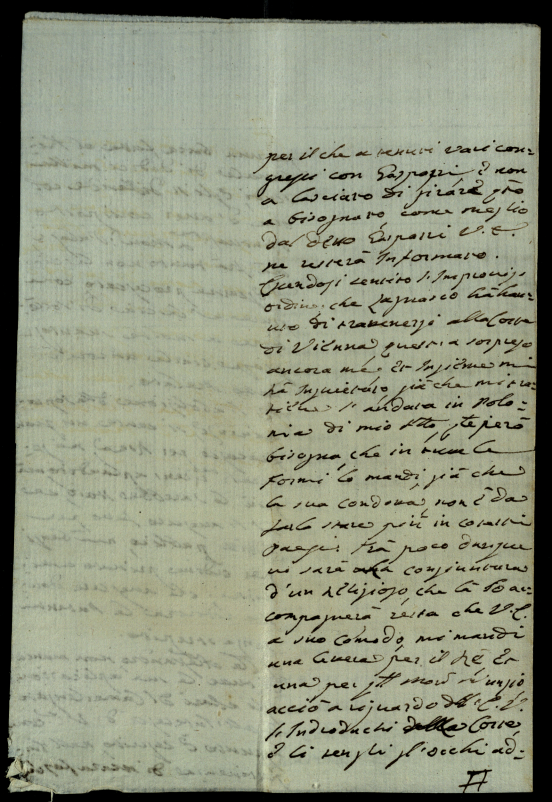 per il che a tenuti varj con-
gressi con Gasparri e non
a lasciato di girare pto
a bisognato come meglio
dal detto Gasparri V. E.
ne resterà Informato.
Essendosi sentito l'Improviso
ordine, che Lagnasco hà hau-
uto di trattenersi alla Corte
di Vienna questa a sorpreso
ancora mé, et Insieme mi
hà Inquietato già che mi
l'andata in Polo-
nia di mio però
bisogna che in tutte le
formi lo mandi, già che
la sua condotta non è da
farlo stare più in cotesti
Paesi. Frà poco dunque
vi sarà una congiuntura
d'un religioso, che là lo ac-
compagnerà resta che V. E.
a suo comodo, mi mandi
una lettera per il Ré, et
una per
acciò a riguardo dell' E. V.
l'Introduchi della Corte
e li tenghi gl'occhi ad-